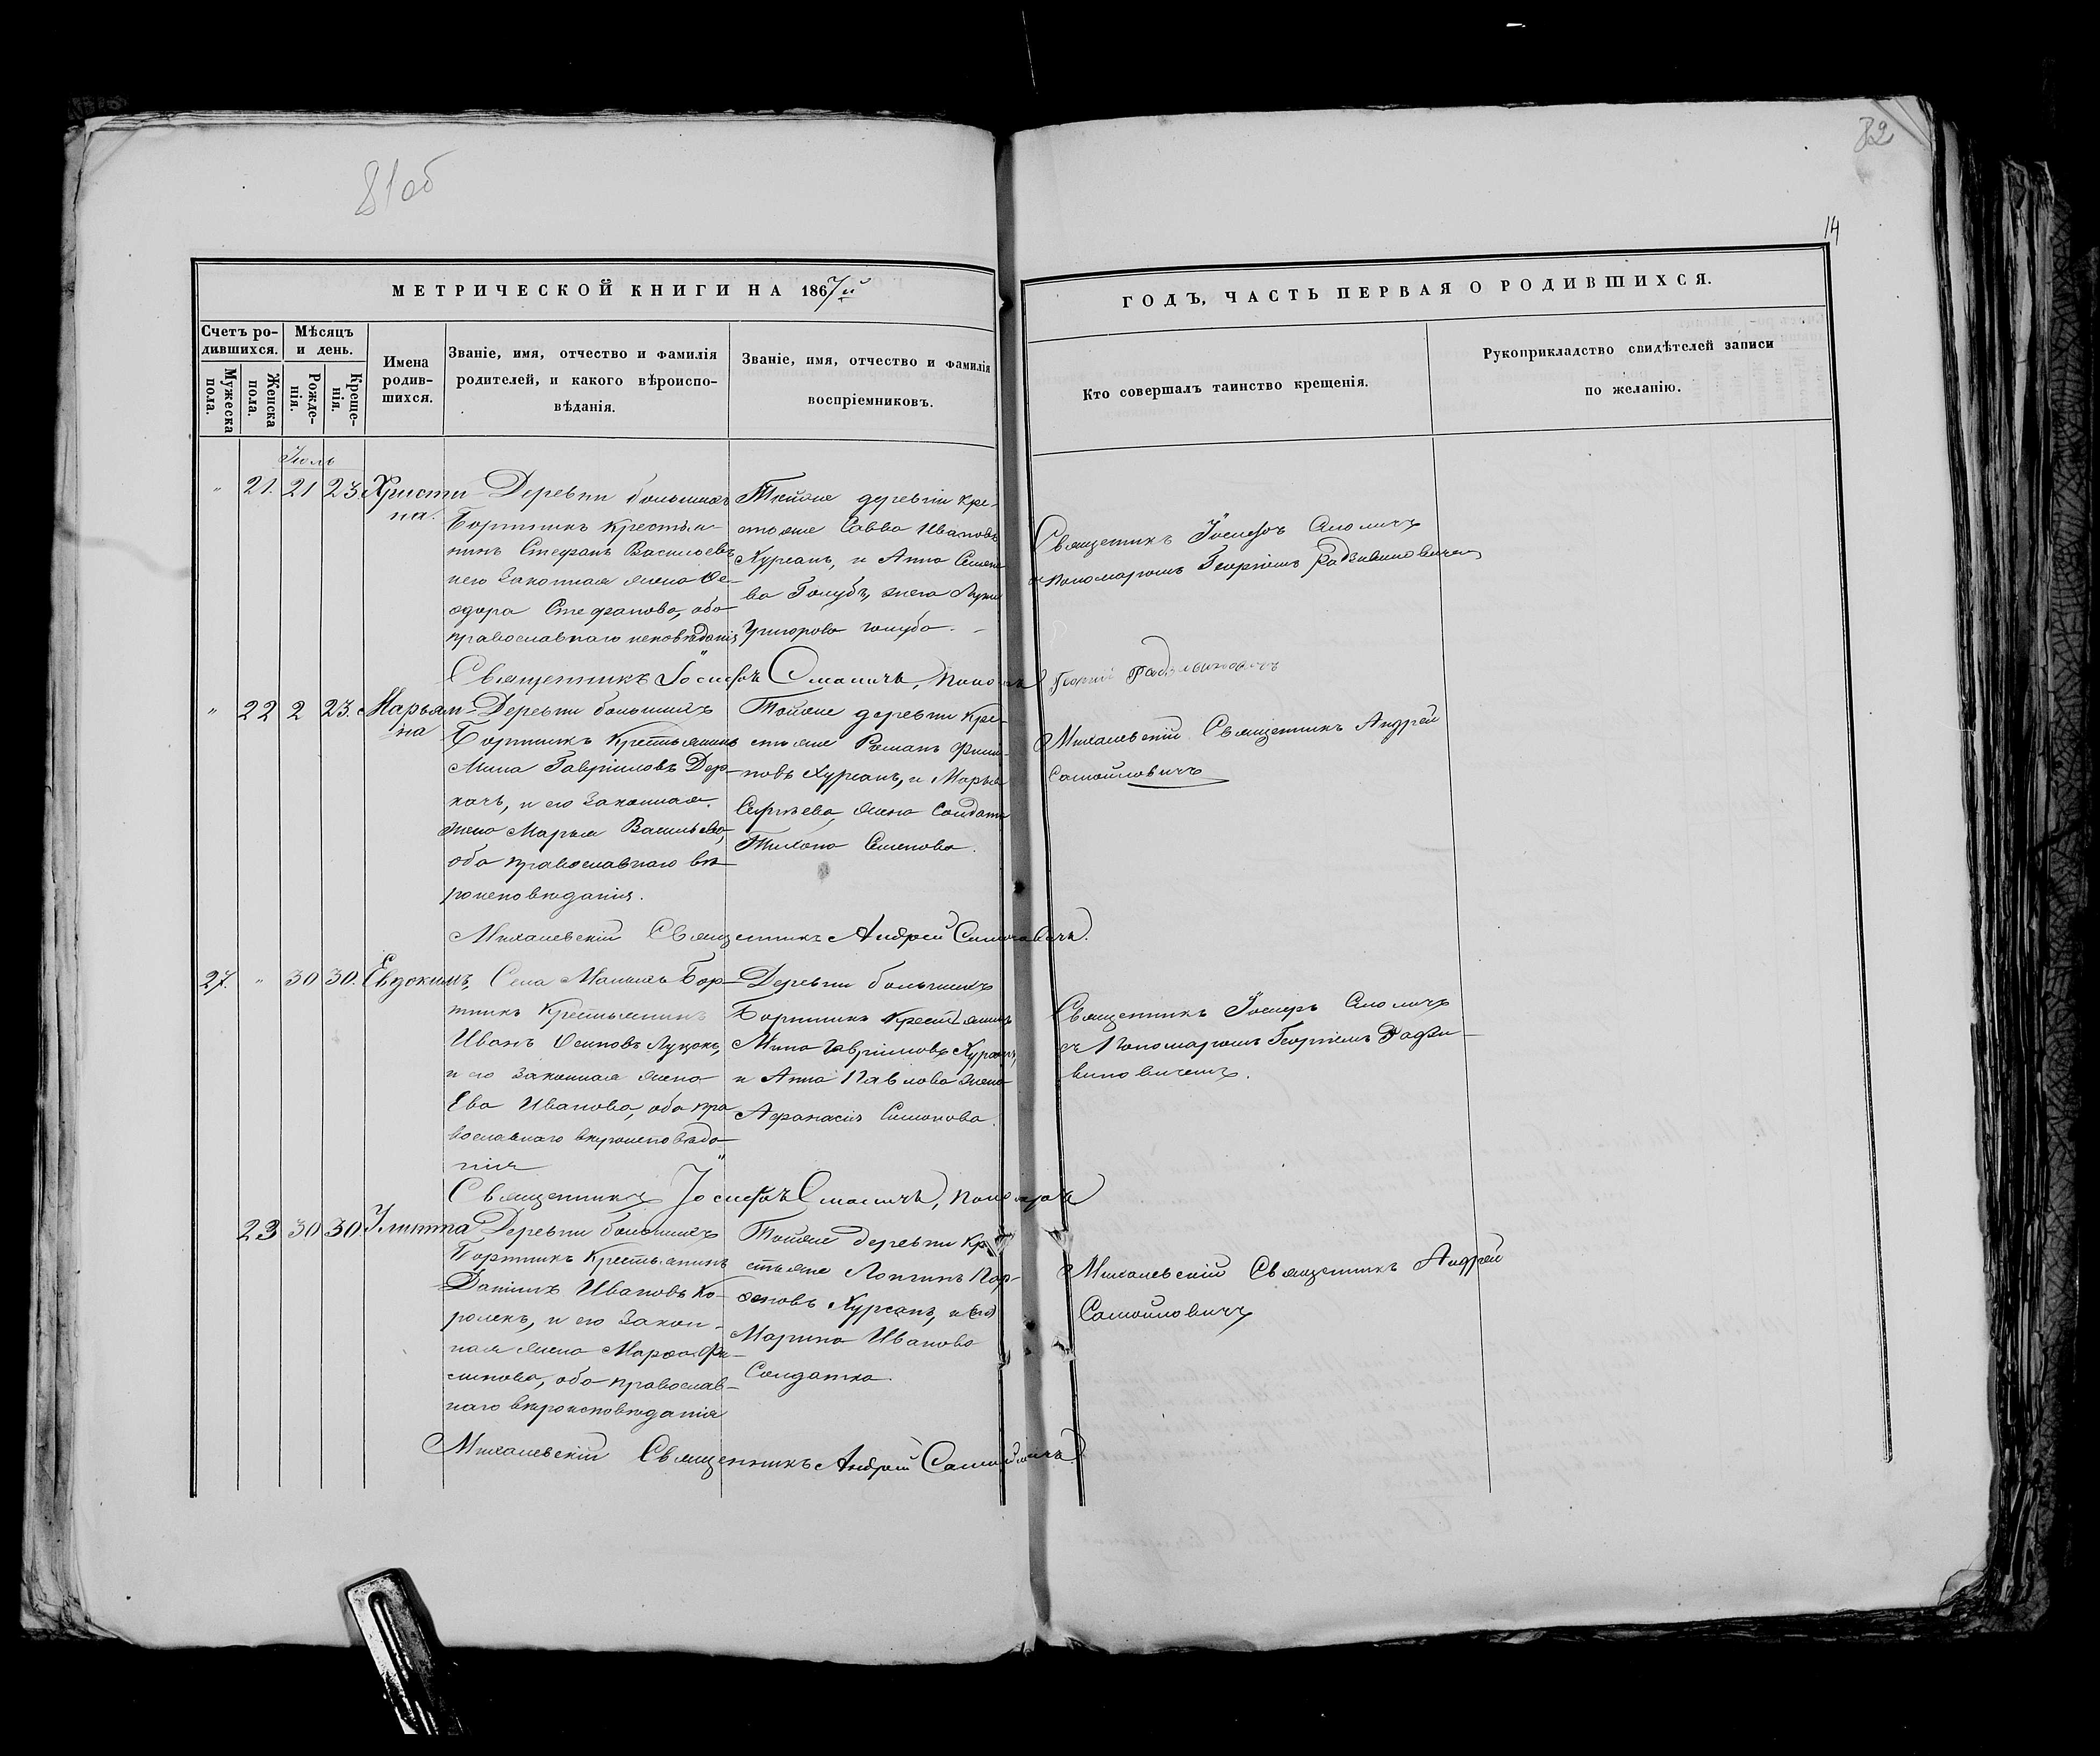 81 об
82
14
МЕТРИЧЕСКОЙ КНИГИ НА 1867й
ГОДЪ, ЧАСТЬ ПЕРВАЯ О РОДИВШИХСЯ.
Счетъ ро-
дившихся.
Мужеска
пола.
Женска
пола.
Мѣсяцъ
и день.
Рожде-
нія.
Креще-
нія.
Имена
родив-
шихся.
Званіе, имя, отчество и фамилія
родителей, и какого вѣроиспо-
вѣданія.
Званіе, имя, отчество и фамилія
воспріемниковъ.
Кто совершалъ таинство крещенія.
Рукоприкладство свидѣтелей записи
по желанію.
Іюль
" 21. 21 23 Христи-
на.
Деревни большихъ
Бортникъ крестья-
нинъ Стефанъ Васильевъ
Законная жена Ѳе-
одора Стефанова, оба
православнаго исповѣданія
Тойже деревни кре-
стьяне Савва Ивановъ
Хурсанъ, и Анна Семено-
ва Голубъ, жена Луки
Григорова Голуба.
Священникъ Іосифъ
съ Пономаремъ Георгіемъ Радзивиновичемъ
Священникъ Іосифъ
Георгій Радзивиновичъ
" 22 2 23. Марьян-
на
Деревни большихъ
Бортникъ крестьянинъ
Мина Гавріиловъ Дер-
качъ, и его Законная
жена Марья Васильева,
оба православнаго вѣ-
роисповѣданія.
Тойже деревни кре-
стьяне Романъ Филип-
повъ Хурсанъ, и Марья
Сергѣева, жена Солдата
Тихона Семенова.
Михалевскій Священникъ Андрей
Самойловичъ
Михалевскій Священникъ Андрей Самойловичъ.
27. " 30 30. Евдокимъ,
Села Малыхъ Бор-
тникъ Крестьянинъ
Иванъ Осиповъ Луцокъ,
и его законная жена
Ева Иванова, оба пра
вославнаго вѣроисповѣда-
нія
Деревни большихъ
Бортникъ Крестьянинъ
Мина Гавріиловъ Хурсанъ,
и Анна Павлова жена
Афанасія Симонова.
Священникъ Іосифъ
съ Пономаремъ Георгіемъ Радзи-
виновичемъ.
Священникъ Іосифъ
23 30 30. Улитта
Деревни большихъ
Бортникъ Крестьянинъ
Даніилъ Ивановъ Ко-
ролекъ, и его Закон-
ная жена Марѳа Фи-
липова, оба православ-
наго вѣроисповѣданія
Тойже деревни Кре
стьяне Лонгинъ Пар-
ѳеновъ Хурсанъ, и
Марина Иванова
Солдатка.
Михалевскій Священникъ Андрей
Самойловичъ
Михалевскій Священникъ Андрей Самойловичъ